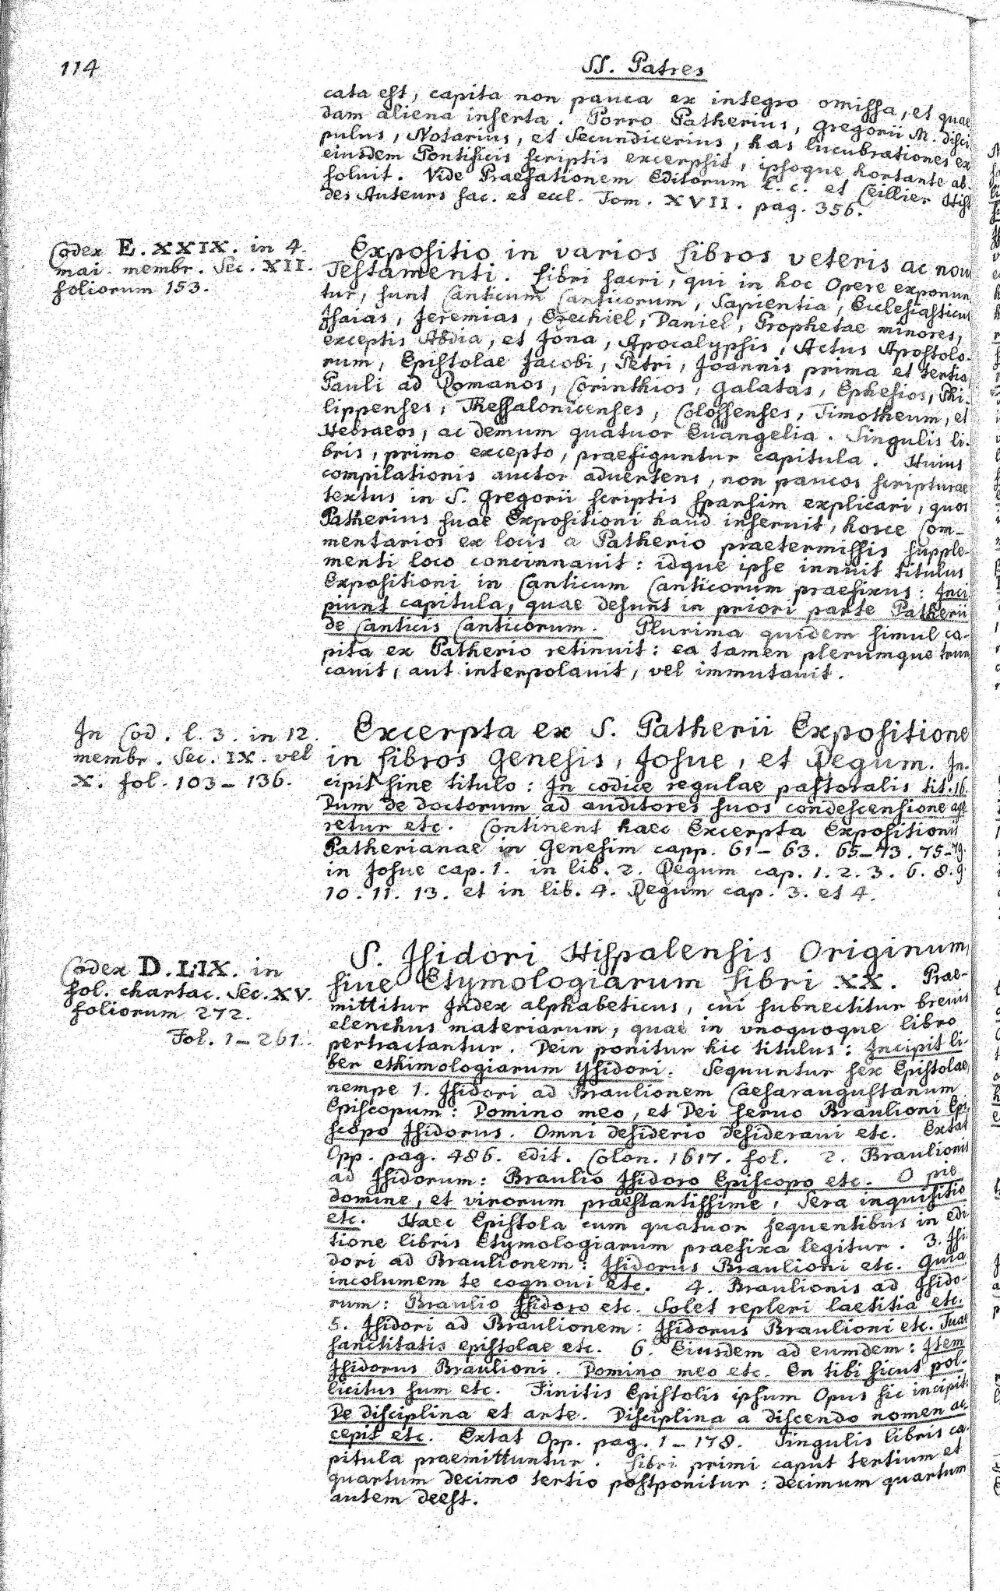 114
SS. Patres
cata est, capita non pauca ex integro omissa, et quae
dam aliena inserta. Porro Patherius, Gregorii M. disci
pulus, Notarius, et Secundicerius, has lucubrationes ex
eiusdem Pontificis scriptis excerpsit, ipsoque hortante ab
soluit. Vide Praefationem Editorum l. c. et Ceillier Hist
des Auteurs sac. et eccl. Tom. XVII. pag. 356.
Codex E. XXIX. in 4.
mai. membr. Sec. XII.
foliorum 153.
Expositio in varios Libros veteris ac noui
Testamenti. Libri sacri, qui in hoc Opere exponun
tur, sunt Canticum Canticorum, Sapientia, Ecclesiasticus
Isaias, Jeremias, Ezechiel, Daniel, Prophetae minores,
exceptis Abdia, et Jona, Apocalypsis, Actus Apostolo-
rum, Epistolae Jacobi, Petri, Joannis prima et tertia
Pauli ad Romanos, Corinthios, Galatas, Ephesios, Phi-
lippenses, Thessalonicenses, Colossenses, Timotheum, et
Hebraeos, ac demum quatuor Euangelia. Singulis li-
bris, primo excepto, praefiguntur capitula. Huius
compilationis auctor aduertens, non paucos scripturae
textus in S. Gregorii scriptis sparsim explicari, quos
Patherius suae Expositioni haud inseruit, hosce Com-
mentarios ex locis a Patherio praetermissis supple-
menti loco concinnauit: idque ipse innuit titulus
Expositioni in Canticum Canticorum praefixus: Inci
piunt capitula, quae desunt in priori parte Patherii
de Canticis Canticorum. Plurima quidem simul ca-
pita ex Patherio retinuit: ea tamen plerumque trun
cauit, aut interpolauit, vel immutauit.
In Cod. l. 3. in 12.
membr. Sec. IX. vel
X. fol. 103-136.
Excerpta ex S. Patherii Expositione
in Libros Genesis, Josue, et Regum. In-
cipit sine titulo: In codice regulae pastoralis tit. 16.
Dum de doctorum ad auditores suos condescensione age
retur etc. Continent haec Excerpta Expositionis
Patherianae in Genesim capp. 61-63. 65-73. 75-79.
in Josue cap. 1. in lib. 2. Regum cap. 1. 2. 3. 6. 8. 9.
10. 11. 13. et in lib. 4. Regum cap. 3. et 4.
Codex D. LIX. in
fol. chartac. Sec. XV.
foliorum 272.
Fol. 1-261.
S. Isidori Hispalensis Originum,
siue Etymologiarum Libri XX. Prae-
mittitur Index alphabeticus, cui subnectitur breuis
elenchus materiarum, quae in vnoquoque libro
pertractantur. Dein ponitur hic titulus: Incipit li-
ber ethimologiarum Ysidori. Sequuntur sex Epistolae,
nempe 1. Isidori ad Braulionem Caesaraugustanum
Episcopum: Domino meo, et Dei seruo Braulioni Epi
scopo Isidorus. Omni desiderio desideraui etc. Extat
Opp. pag. 486. edit. Colon. 1617. fol. 2. Braulionis
ad Isidorum: Braulio Isidoro Episcopo etc. O pie
domine, et virorum praestantissime, Sera inquisitio
etc. Haec Epistola cum quatuor sequentibus in edi
tione libris Etymologiarum praefixa legitur. 3. Isi
dori ad Braulionem: Isidorus Braulioni etc. Quia
incolumem te cognoui etc. 4. Braulionis ad Isido-
rum: Braulio Isidoro etc. Solet repleri laetitia etc.
5. Isidori ad Braulionem: Isidorus Braulioni etc. Tuae
sanctitatis epistolae etc. 6. Eiusdem ad eumdem: Item
Isidorus Braulioni. Domino meo etc. En tibi sicut pol-
licitus sum etc. Finitis Epistolis ipsum Opus sic incipit:
De disciplina et arte. Disciplina a discendo nomen ac
cepit etc. Extat Opp. pag. 1-178. Singulis libris ca-
pitula praemittuntur. Libri primi caput tertium et
quartum decimo tertio postponitur: decimum quartum
autem deest.